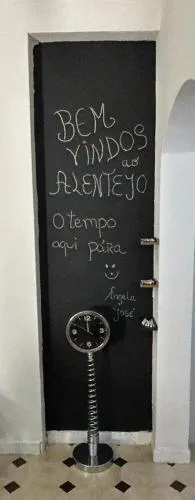 BEM
VINDOS
ao
ALENTEJO
O tempo
aqui pára
Ângela
José